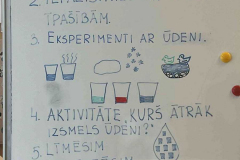 TRAŠĪBĀM.
3. EKSPERIMENTI AR ŪDENI.
4. AKTIVITĀTE "KURŠ ĀTRĀK
IZSMELS ŪDENI?"
5. LĪMĒSIM